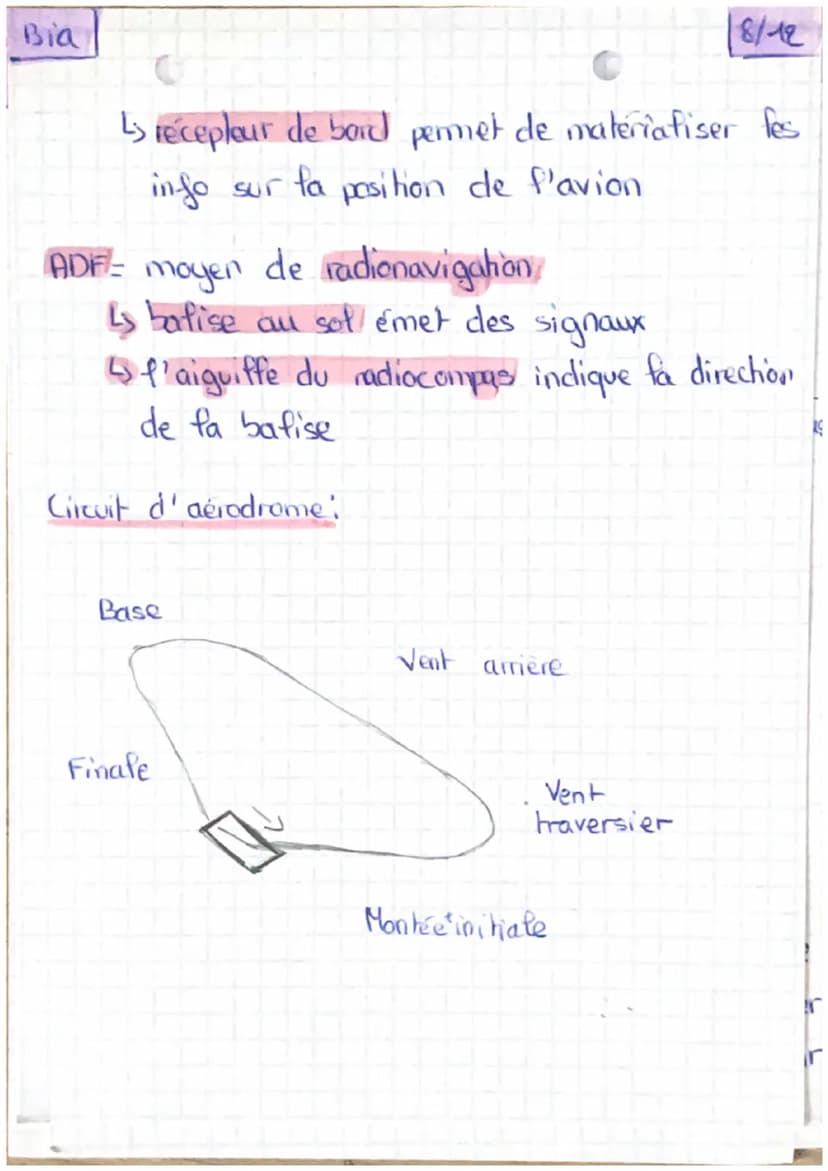 Bia
8/12
↳ récepteur de bord permet de matérialiser les
info sur la position de l'avion
ADF = moyen de radionavigation
↳ balise au sol émet des signaux
↳ l'aiguille du radiocompas indique la direction
de la balise
Circuit d'aérodrome :
Base
Vent arrière
Finale
Vent
traversier
Montée initiale